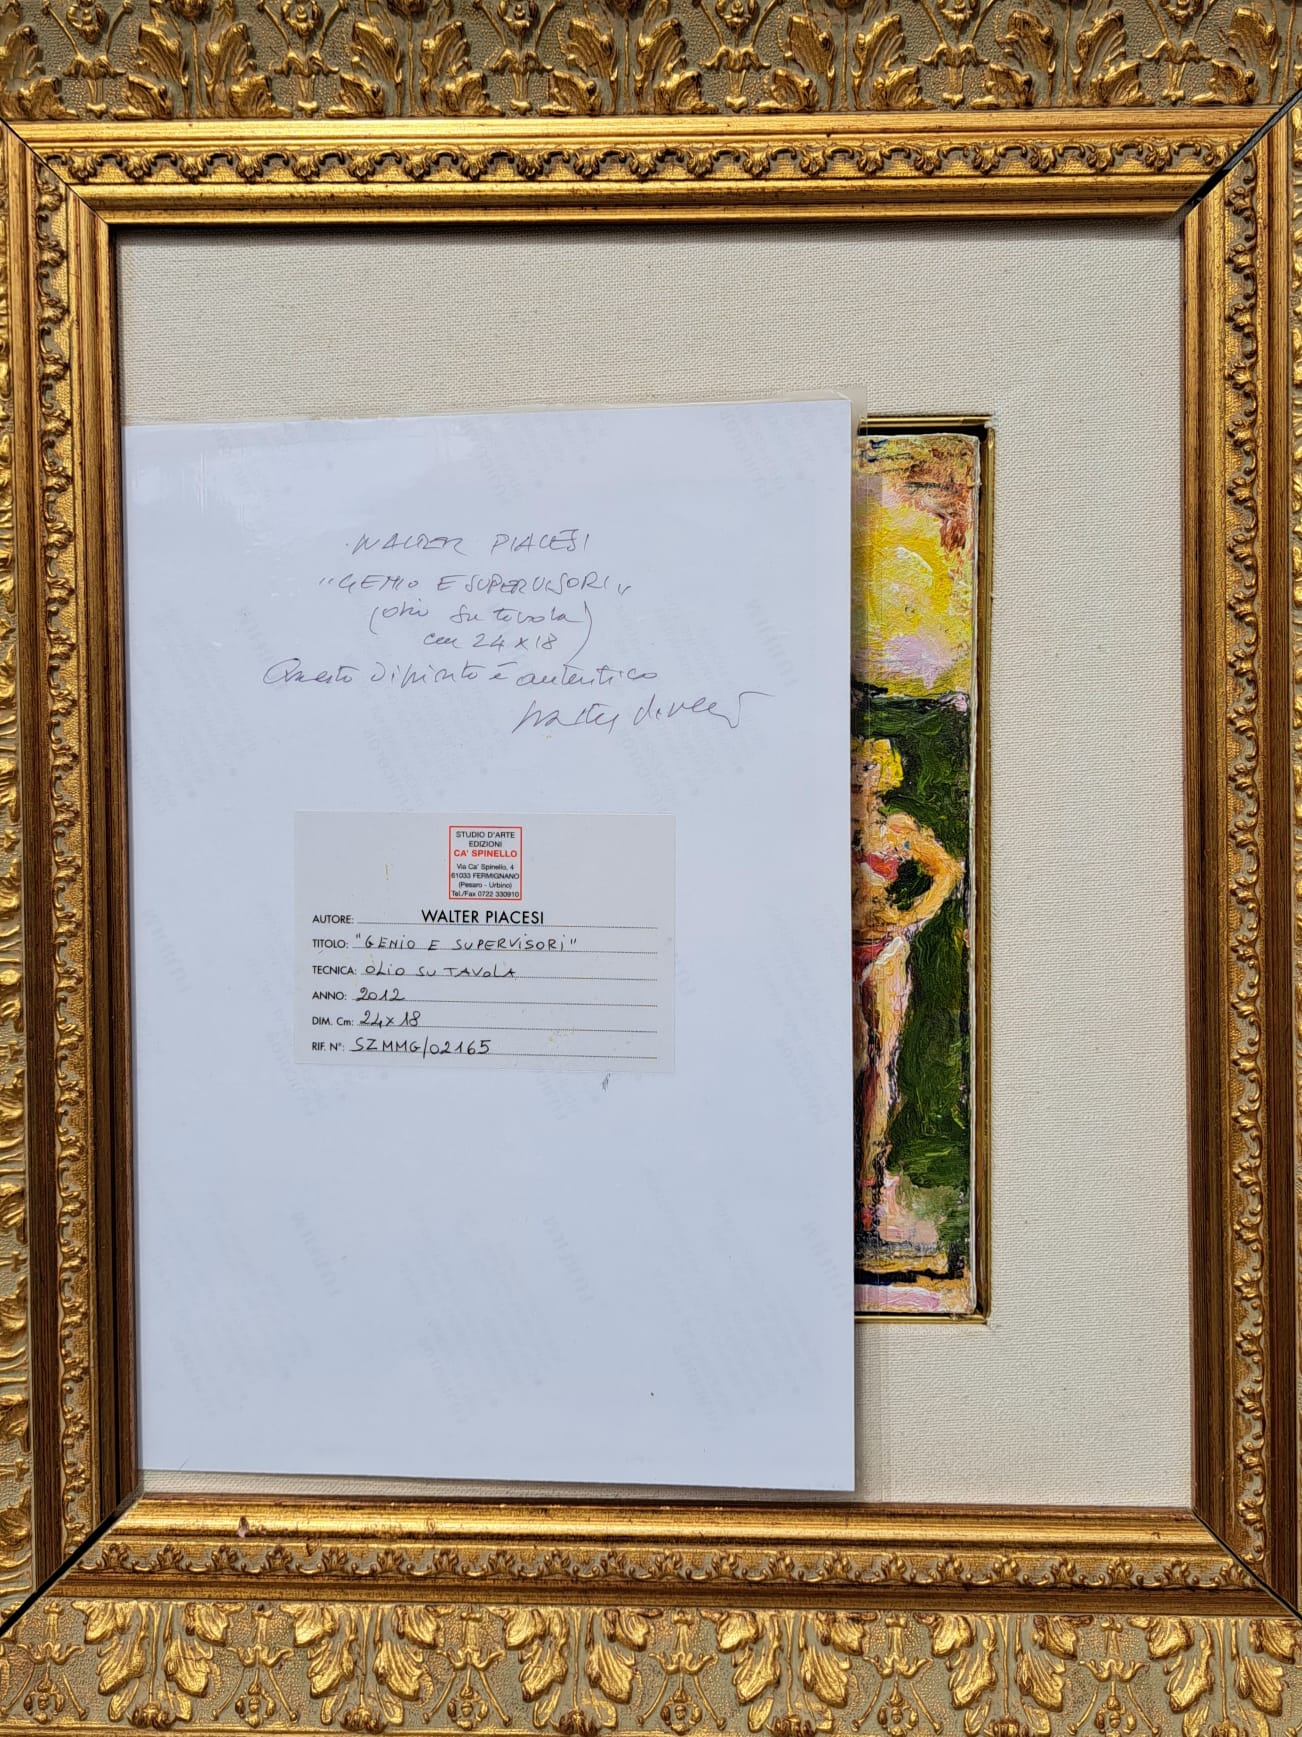 WALTER PIACESI
"GENIO E SUPERVISORI"
(olio su tavola)
cm 24 x 18
Questo dipinto è autentico
STUDIO D'ARTE
EDIZIONI
CA' SPINELLO
Via Ca' Spinello, 4
61033 FERMIGNANO
(Pesaro - Urbino)
Tel./Fax 0722 330910
AUTORE: WALTER PIACESI
TITOLO: "GENIO E SUPERVISORI"
TECNICA: OLIO SU TAVOLA
ANNO: 2012
DIM. Cm: 24 x 18
RIF. N°: SZMMG/02165